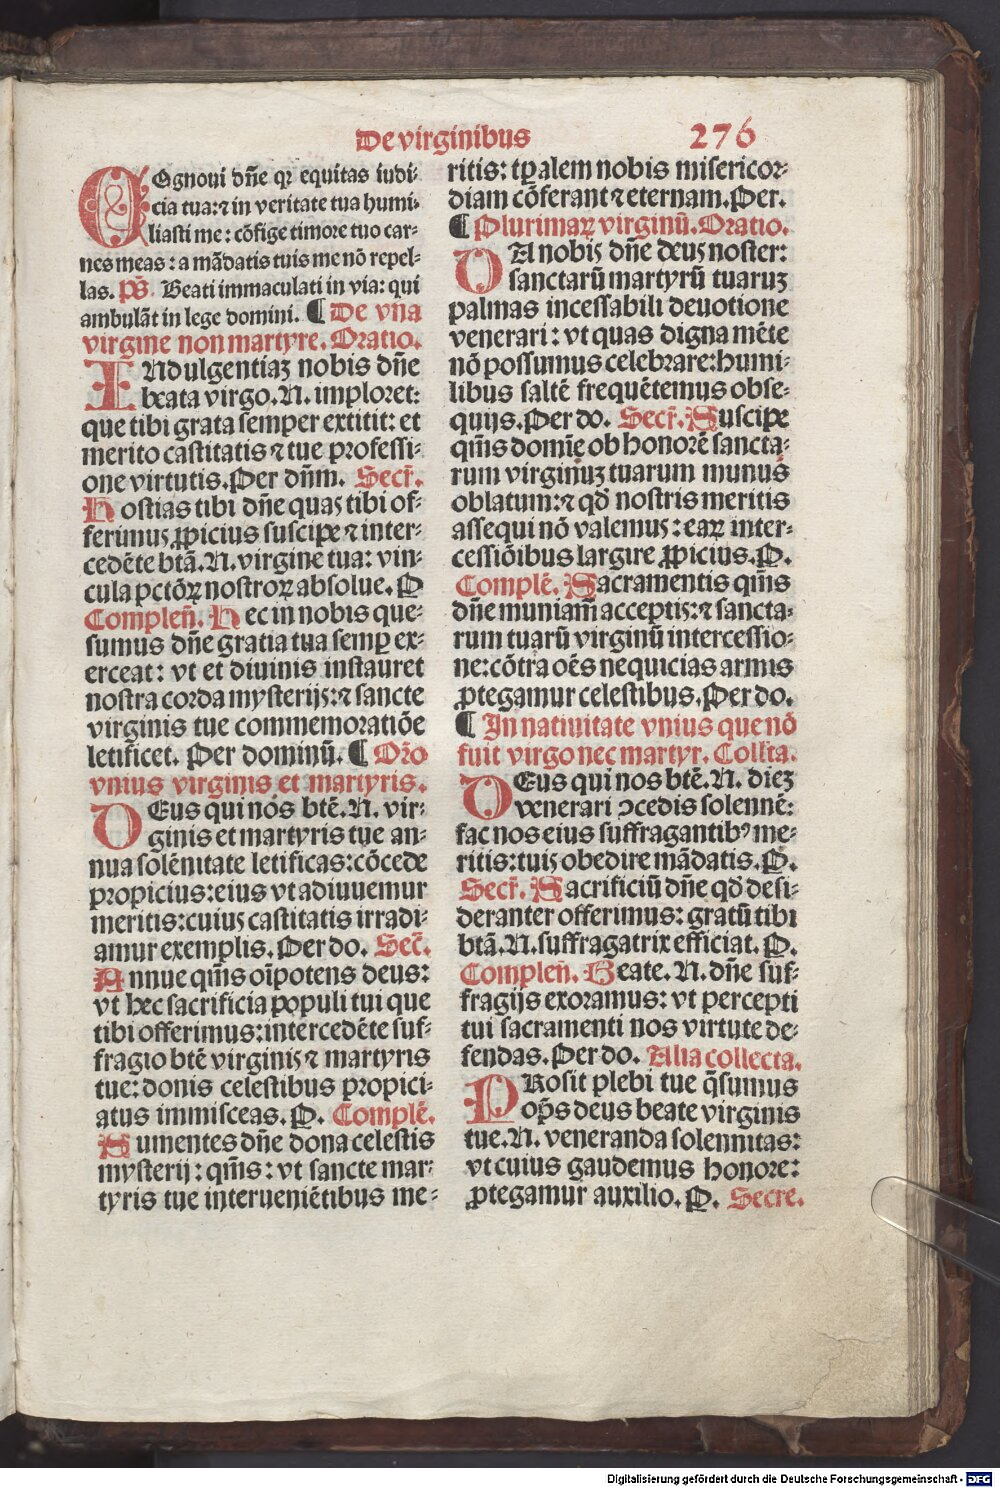 De virginibus 276
COgnoui dñe qꝛ equitas iudi⸗
cia tua:⁊ in veritate tua humi⸗
liasti me : cõfige timore tuo car⸗
nes meas : a mãdatis tuis me nõ repel⸗
las. p̄s. Beati immaculati in via: qui
ambulãt in lege domini. ¶ De vna
virgine non martyre. Oratio.
INdulgentiaꝫ nobis dñe
beata virgo. N. imploret:
que tibi grata semper extitit: et
merito castitatis ⁊ tue professi⸗
one virtutis. Per dñm. Secr̄.
Hostias tibi dñe quas tibi of⸗
ferimus ꝓpicius suscipe ⁊ inter⸗
cedẽte btã. N. virgine tua: vin⸗
cula pctõꝝ nostroꝝ absolue. P
Compleñ. Hec in nobis que⸗
sumus dñe gratia tua semꝑ ex⸗
erceat : vt et diuinis instauret
nostra corda mysterijs:⁊ sancte
virginis tue commemoratiõe
letificet. Per dominũ. ¶ Orõ
vnius virginis et martyris.
DEus qui nos btẽ. N. vir⸗
ginis et martyris tue an⸗
nua solẽnitate letificas:cõcede
propicius:eius vt adiuuemur
meritis:cuius castitatis irradi⸗
amur exemplis. Per do. Sec̄.
Annue qm̃s oĩpotens deus:
vt hec sacrificia populi tui que
tibi offerimus:intercedẽte suf⸗
fragio btẽ virginis ⁊ martyris
tue: donis celestibus propici⸗
atus immisceas. P. Complẽ.
Sumentes dñe dona celestis
mysterij : qm̃s : vt sancte mar⸗
tyris tue interueniẽtibus me⸗
ritis: tꝑalem nobis misericor⸗
diam cõferant ⁊ eternam. Per.
¶ Plurimaꝝ virginũ. Oratio.
DA nobis dñe deus noster:
sanctarũ martyrũ tuaruꝫ
palmas incessabili deuotione
venerari : vt quas digna mẽte
nõ possumus celebrare:humi⸗
libus saltẽ frequẽtemus obse⸗
quijs. Per do. Secr̄. Suscipe
qm̃s domĩe ob honorẽ sancta⸗
rum virginuꝫ tuarum munus
oblatum:⁊ qď nostris meritis
assequi nõ valemus : eaꝝ inter⸗
cessiõibus largire ꝓpicius. P.
Complẽ. Sacramentis qm̃s
dñe muniam̃ acceptis:⁊ sancta⸗
rum tuarũ virginũ intercessio⸗
ne:cõtra oẽs nequicias armis
ꝓtegamur celestibus. Per do.
¶ In natiuitate vnius que nõ
fuit virgo nec martyr. Collta.
DEus qui nos btẽ. N. dieꝫ
venerari ↄcedis solennẽ:
fac nos eius suffragantibꝰ me⸗
ritis:tuis obedire mãdatis. P.
Secr̄. Sacrificiũ dñe qď desi⸗
deranter offerimus: gratũ tibi
btã. N. suffragatrix efficiat. P.
Compleñ. Beate. N. dñe suf⸗
fragijs exoramus: vt percepti
tui sacramenti nos virtute de⸗
fendas. Per do. Alia collecta.
PRosit plebi tue q̃sumus
op̃s deus beate virginis
tue. N. veneranda solennitas:
vt cuius gaudemus honore:
ꝓtegamur auxilio. P. Secre.
Digitalisierung gefördert durch die Deutsche Forschungsgemeinschaft - DFG